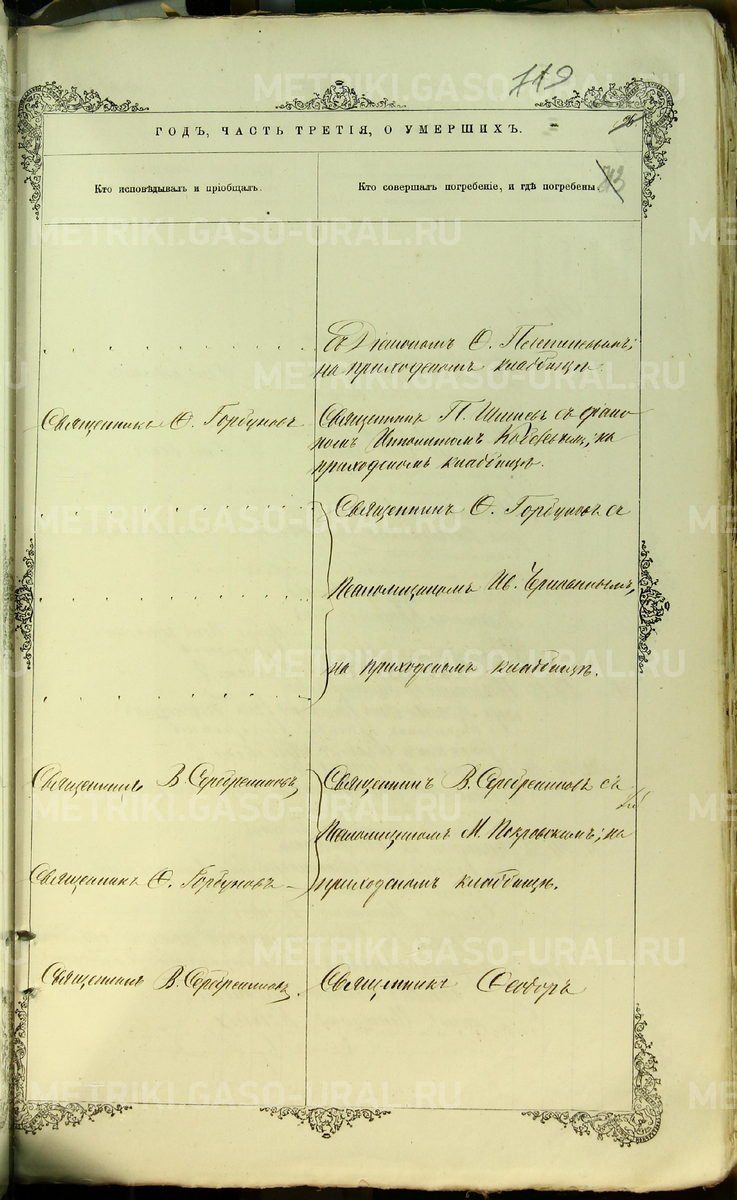 119
ГОДЪ, ЧАСТЬ ТРЕТІЯ, О УМЕРШИХЪ.
Кто исповѣдывалъ и пріобщалъ.
Кто совершалъ погребеніе, и гдѣ погребены.
съ Діакономъ Ѳ.
на приходскомъ кладбищѣ.
Священникъ Ѳ. Горбуновъ
Священникъ П. съ діако-
номъ Ипполитомъ на
приходскомъ кладбищѣ.
Священникъ Ѳ. Горбуновъ съ
Псаломщикомъ Ив.
на приходскомъ кладбищѣ.
Священникъ В. Серебренниковъ,
Священникъ В. Серебренниковъ съ
Псаломщикомъ М. Покровскимъ; на
Священникъ Ѳ. Горбуновъ –
приходскомъ кладбищѣ.
Священникъ В. Серебренниковъ.
Священникъ Ѳеодоръ
METRIKI.GASO-URAL.RU